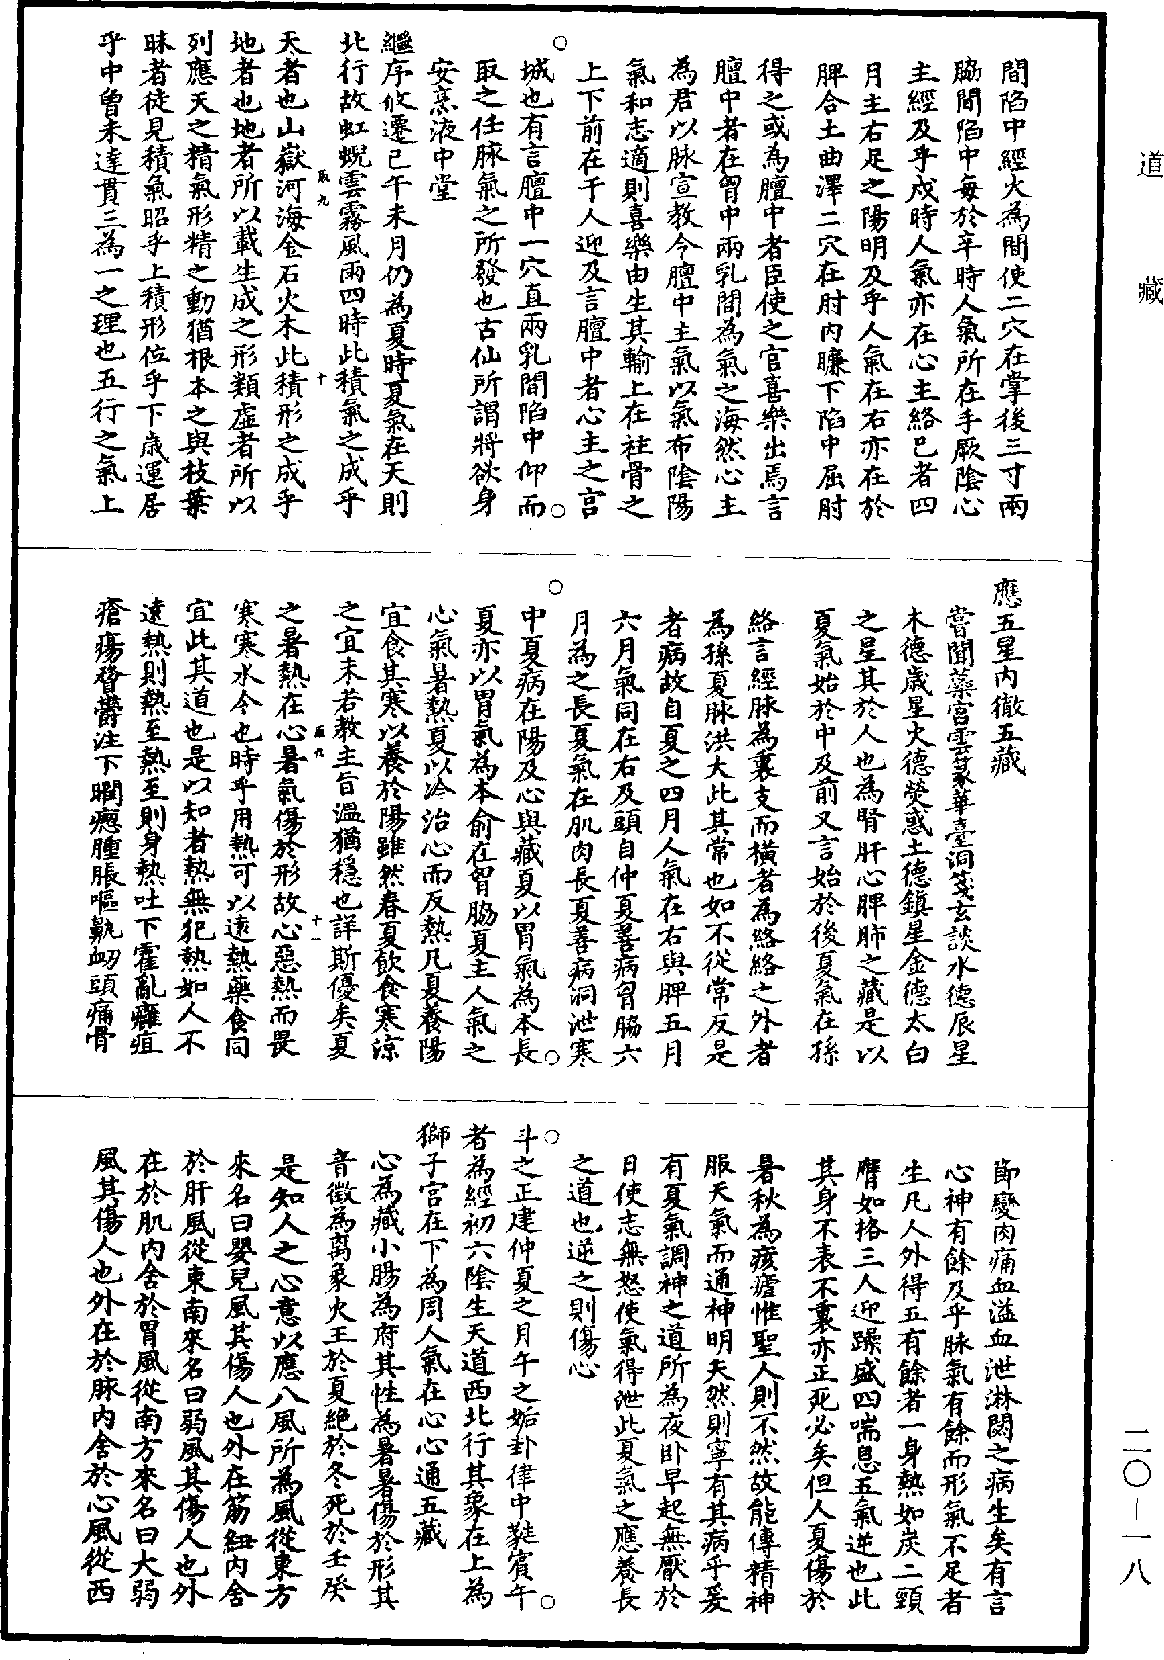 道藏
間陷中經火為間使二穴在掌後三寸兩
脇間陷中每於辛時人氣所在手厥陰心
主經及乎戌時人氣亦在心主絡巳者四
月主右足之陽明及乎人氣在右亦在於
脾合土曲澤二穴在肘內臁下陷中屈肘
得之或為膻中者臣使之官喜樂出焉言
膻中者在胷中兩乳間為氣之海然心主
為君以脉宣教令膻中主氣以氣布陰陽
氣和志適則喜樂由生其輸上在柱骨之
上下前在于人迎及言膻中者心主之宫
城也有言膻中一穴直兩乳間陷中仰而
取之任脉氣之所發也古仙所謂將欲身
安烹液中堂
繼序攸遷已午未月仍為夏時夏氣在天則
北行故虹蜺雲霧風雨四時此積氣之成乎
天者也山嶽河海金石火木此積形之成乎
地者也地者所以載生成之形類虛者所以
列應天之精氣形精之動猶根本之與枝葉
昧者徒見積氣昭乎上積形位乎下歲運居
乎中曾未達貫三為一之理也五行之氣上
應五星內徹五藏
嘗聞蘂宮雲篆華臺洞笈玄談水德辰星
木德歲星火德熒惑土德鎮星金德太白
之星其於人也為腎肝心脾肺之藏是以
夏氣始於中及前又言始於後夏氣在孫
絡言經脉為裏支而橫者為絡絡之外者
為孫夏脉洪大此其常也如不從常反是
者病故自夏之四月人氣在右與脾五月
六月氣同在右及頭自仲夏善病胷脇六
月為之長夏氣在肌肉長夏善病洞泄寒
中夏病在陽及心與藏夏以胃氣為本長
夏亦以胃氣為本俞在胷脇夏主人氣之
心氣暑熱夏以冷治心而反熱凡夏養陽
宜食其寒以養於陽雖然春夏飲食寒涼
之宜未若教主旨溫猶穩也詳斯優矣夏
之暑熱在心暑氣傷於形故心惡熱而畏
寒寒水令也時乎用熱可以遠熱藥食同
宜此其道也是以知者熱無犯熱如人不
遠熱則熱至熱至則身熱吐下霍亂癰疽
瘡瘍瞀鬱注下瞤瘛腫脹嘔鼽衂頭痛骨
節變肉痛血溢血泄淋閟之病生矣有言
心神有餘及乎脉氣有餘而形氣不足者
生凡人外得五有餘者一身熱如炭二頸
膺如格三人迎躁盛四喘息五氣逆也此
其身不表不裏亦正死必矣但人夏傷於
暑秋為痎瘧惟聖人則不然故能傳精神
服天氣而通神明天然則寧有其病乎爰
有夏氣調神之道所為夜卧早起無厭於
日使志無怒使氣得泄此夏氣之應養長
之道也逆之則傷心
斗之正建仲夏之月午之姤卦律中蕤賓午
者為經初六陰生天道西北行其象在上為
獅子宮在下為周人氣在心心通五藏
心為藏小腸為府其性為暑暑傷於形其
音徵為离象火王於夏絕於冬死於壬癸
是知人之心意以應八風所為風從東方
來名曰嬰兒風其傷人也外在筋紐內舍
於肝風從東南來名曰弱風其傷人也外
在於肌內舍於胃風從南方來名曰大弱
風其傷人也外在於脉內舍於心風從西
辰九
十
辰九
十一
二〇—一八